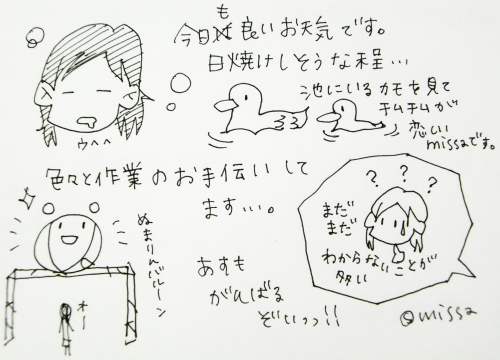 今日も良いお天気です。
日焼けしそうな程…
池にいるカモを見て
チムチムが
恋しい
missaです。
ウヘヘ
色々と作業のお手伝いして
ます…。
ぬまりんバルーン
オー
あすも
がんばる
ぞいっっ!!
? ? ?
まだ
まだ
わからないことが
多い
@missa